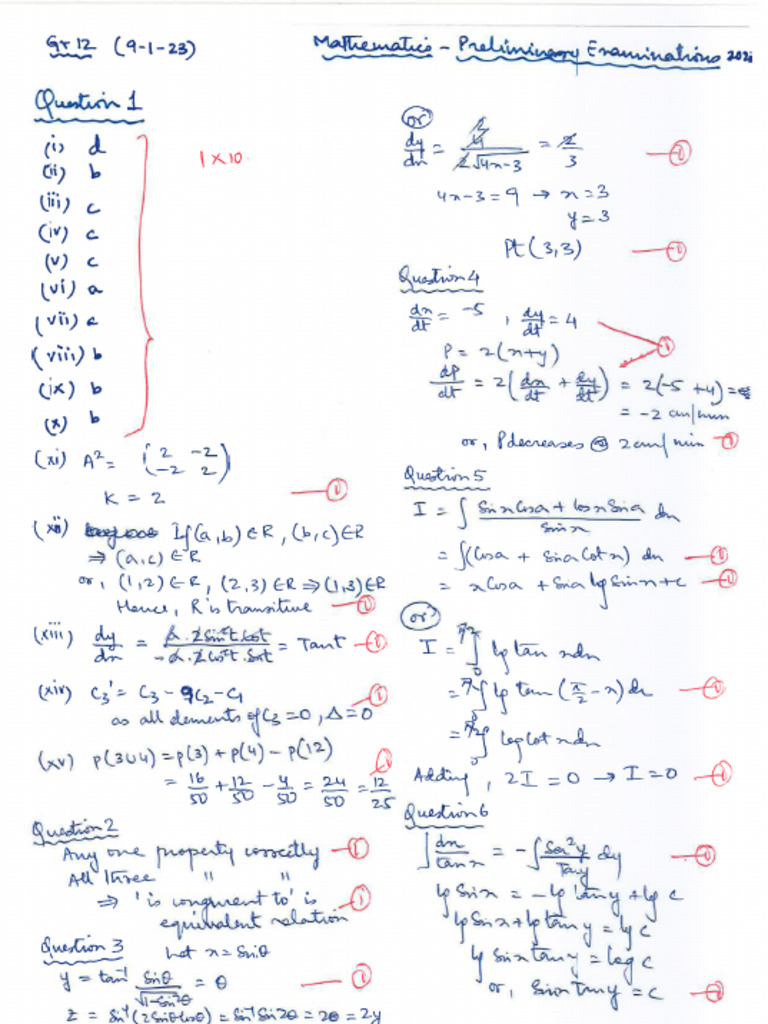 Gr 12 (9-1-23)
Mathematics - Preliminary Examinations
Question 1
(i) d
(ii) b
(iii) c
(iv) c
(v) c
(vi) a
(vii) c
(viii) b
(ix) b
(x) b
1 x 10
(xi) A² = (2 -2
-2 2)
K = 2 ①
(xii) If (a,b) ∈ R, (b,c) ∈ R
⇒ (a,c) ∈ R
or, (1,2) ∈ R, (2,3) ∈ R ⇒ (1,3) ∈ R
Hence, R is transitive ①
(xiii) dy/dx = = Tan t ①
(xiv) C₃' = C₃ - 9C₂ - C₁ ①
as all elements of C₃ = 0, Δ = 0
(xv) P(3∪4) = P(3) + P(4) - P(12) ①
= 16/50 + 12/50 - 4/50 = 24/50 = 12/25
Question 2
Any one property correctly ①
All three " "
⇒ 'is congruent to' is ①
equivalent relation
Question 3
Let x = Sinθ
y = tan⁻¹ Sinθ/√(1-Sin²θ) = θ ①
z = Sin⁻¹(2Sinθcosθ) = Sin⁻¹ Sin2θ = 2θ = 2y
or
dy/dx = 4/(2√(4x-3)) = 2/3 ①
4x-3 = 9 → x = 3
y = 3
Pt (3,3) ①
Question 4
dx/dt = -5, dy/dt = 4
P = 2(x+y) ①
dP/dt = 2(dx/dt + dy/dt) = 2(-5 + 4) =
= -2 cm/min
or, P decreases @ 2 cm/min ①
Question 5
I = ∫ (Sin x Cos a + Cos x Sin a)/Sin x dx
= ∫(Cos a + Sin a Cot x) dx ①
= x Cos a + Sin a lg Sin x + c ①
or
I = ∫₀^π/2 lg tan x dx
= ∫₀^π/2 lg tan (π/2 - x) dx ①
= ∫₀^π/2 log Cot x dx
Adding, 2I = 0 → I = 0 ①
Question 6
∫ dx/tan x = -∫ Sec²y/Tan y dy ①
lg Sin x = -lg tan y + lg c
lg Sin x + lg tan y = lg c
lg Sin x tan y = log c
or, Sin x Tan y = c ①